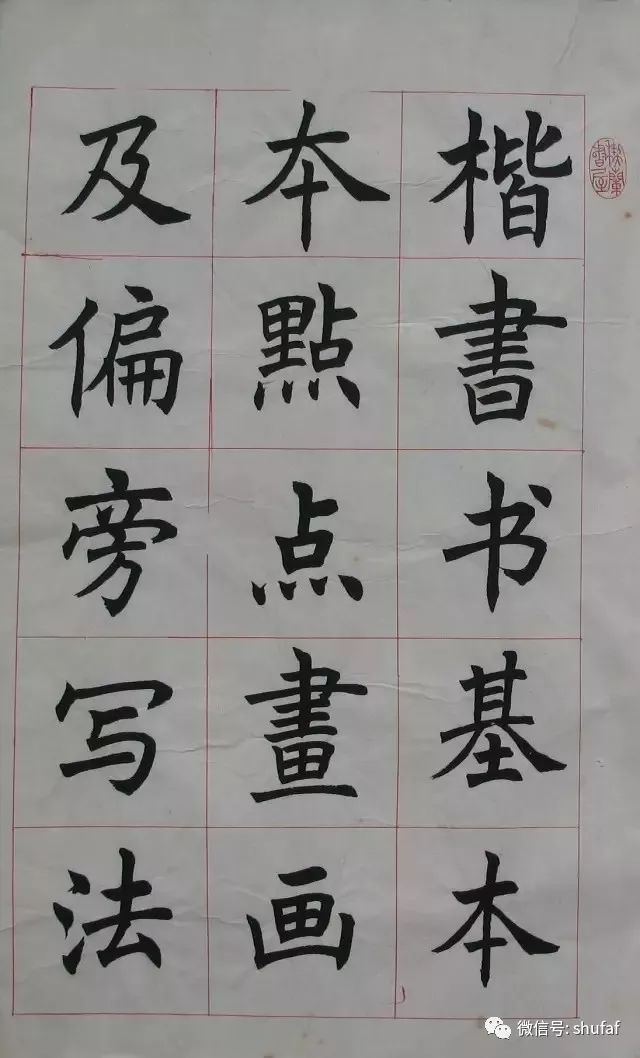 楷書书基本
夲點点畫画
及偏旁写法
微信号: shufaf